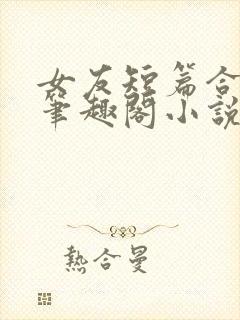 女友短篇合
筆趣閣小說
熱合曼